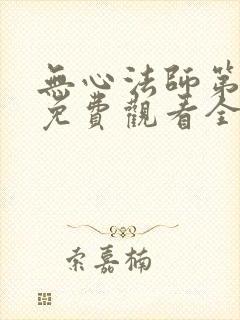 無心法師第
免費觀看全
索嘉楠